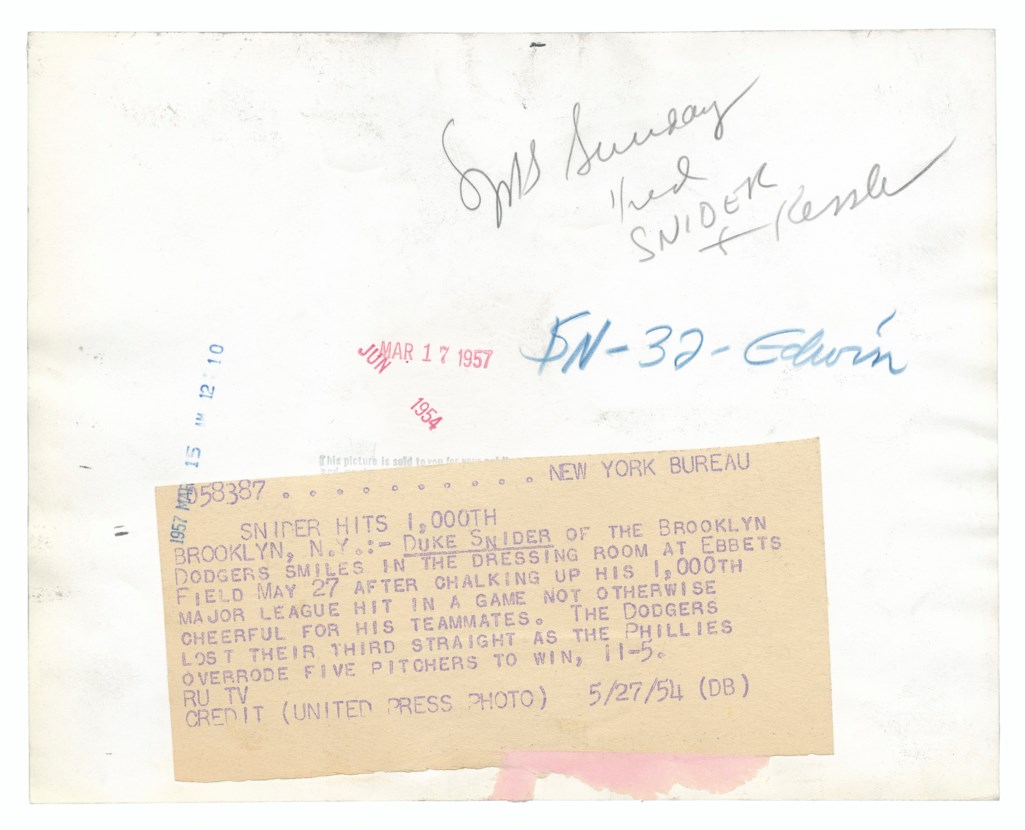 Sunday
SNIDER
+ Kessler
MAR 17 1957
JUN
1954
DN-32-Edwin
1957 MAR 15 AM 12:10
This picture is sold to you for your
D58387 . . . . . . . . . . . NEW YORK BUREAU
SNIDER HITS 1,000TH
BROOKLYN, N.Y.:- DUKE SNIDER OF THE BROOKLYN
DODGERS SMILES IN THE DRESSING ROOM AT EBBETS
FIELD MAY 27 AFTER CHALKING UP HIS 1,000TH
MAJOR LEAGUE HIT IN A GAME NOT OTHERWISE
CHEERFUL FOR HIS TEAMMATES. THE DODGERS
LOST THEIR THIRD STRAIGHT AS THE PHILLIES
OVERRODE FIVE PITCHERS TO WIN, 11-5.
RU TV
CREDIT (UNITED PRESS PHOTO) 5/27/54 (DB)